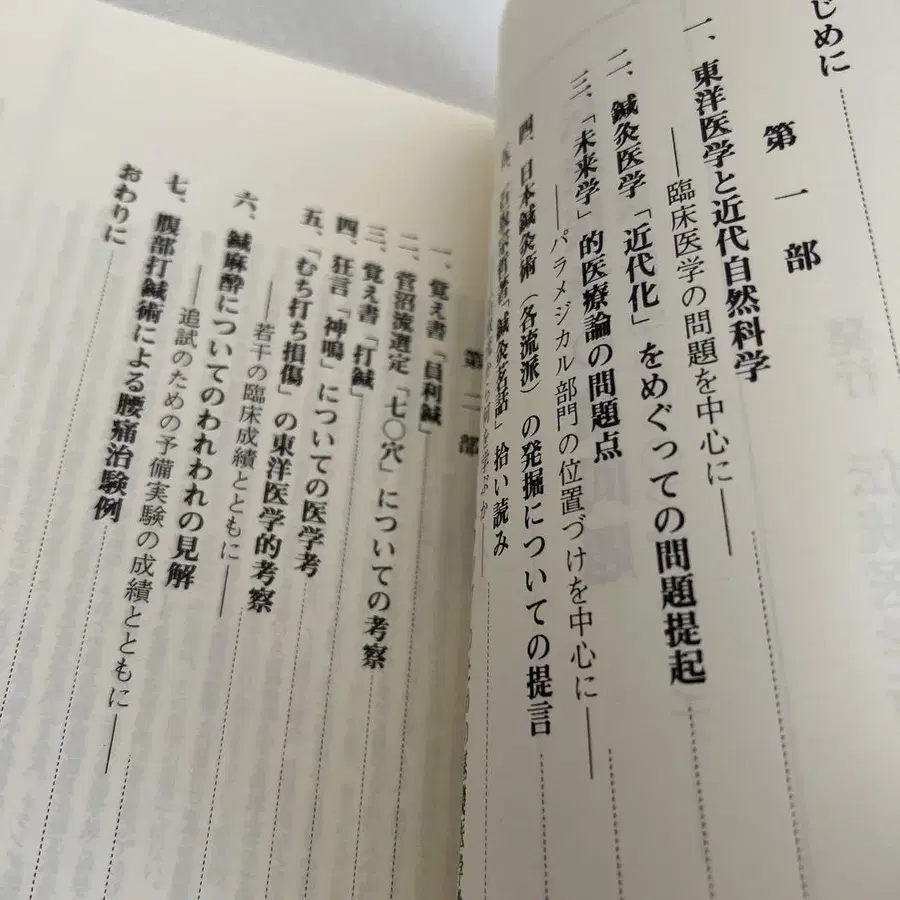 じめに
第一部
一、東洋医学と近代自然科学
――臨床医学の問題を中心に――
二、鍼灸医学「近代化」をめぐっての問題提起
三、「未来学」的医療論の問題点
――パラメジカル部門の位置づけを中心に――
四、日本鍼灸術（各流派）の発掘についての提言
「鍼灸茗話」拾い読み
第二部
一、覚え書「員利鍼」
二、菅沼流選定「七〇穴」についての考察
三、覚え書「打鍼」
四、狂言「神鳴」についての医学考
五、「むち打ち損傷」の東洋医学的考察
――若干の臨床成績とともに――
六、鍼麻酔についてのわれわれの見解
――追試のための予備実験の成績とともに――
七、腹部打鍼術による腰痛治験例
おわりに